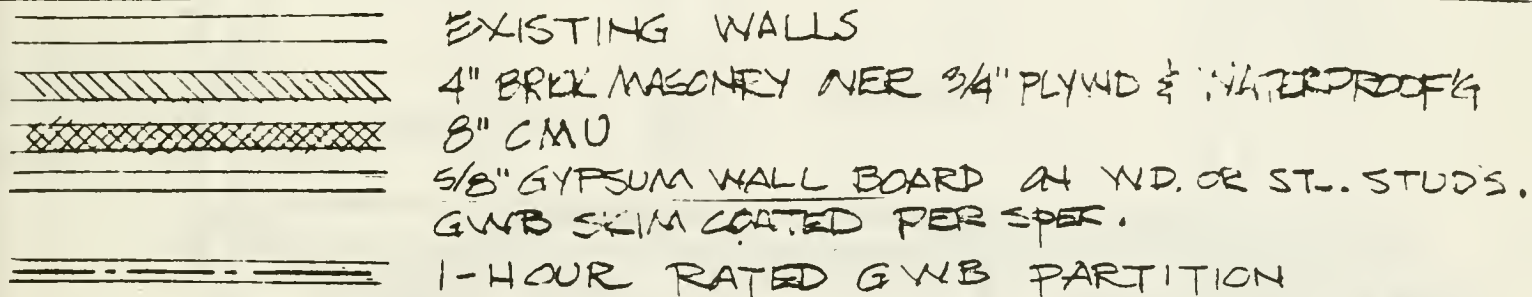 EXISTING WALLS
4" BRICK MASONRY OVER 3/4" PLYWD & WATERPROOF'G
8" CMU
5/8" GYPSUM WALL BOARD ON WD. OR STL. STUDS.
GWB SKIM COATED PER SPEC.
1-HOUR RATED GWB PARTITION